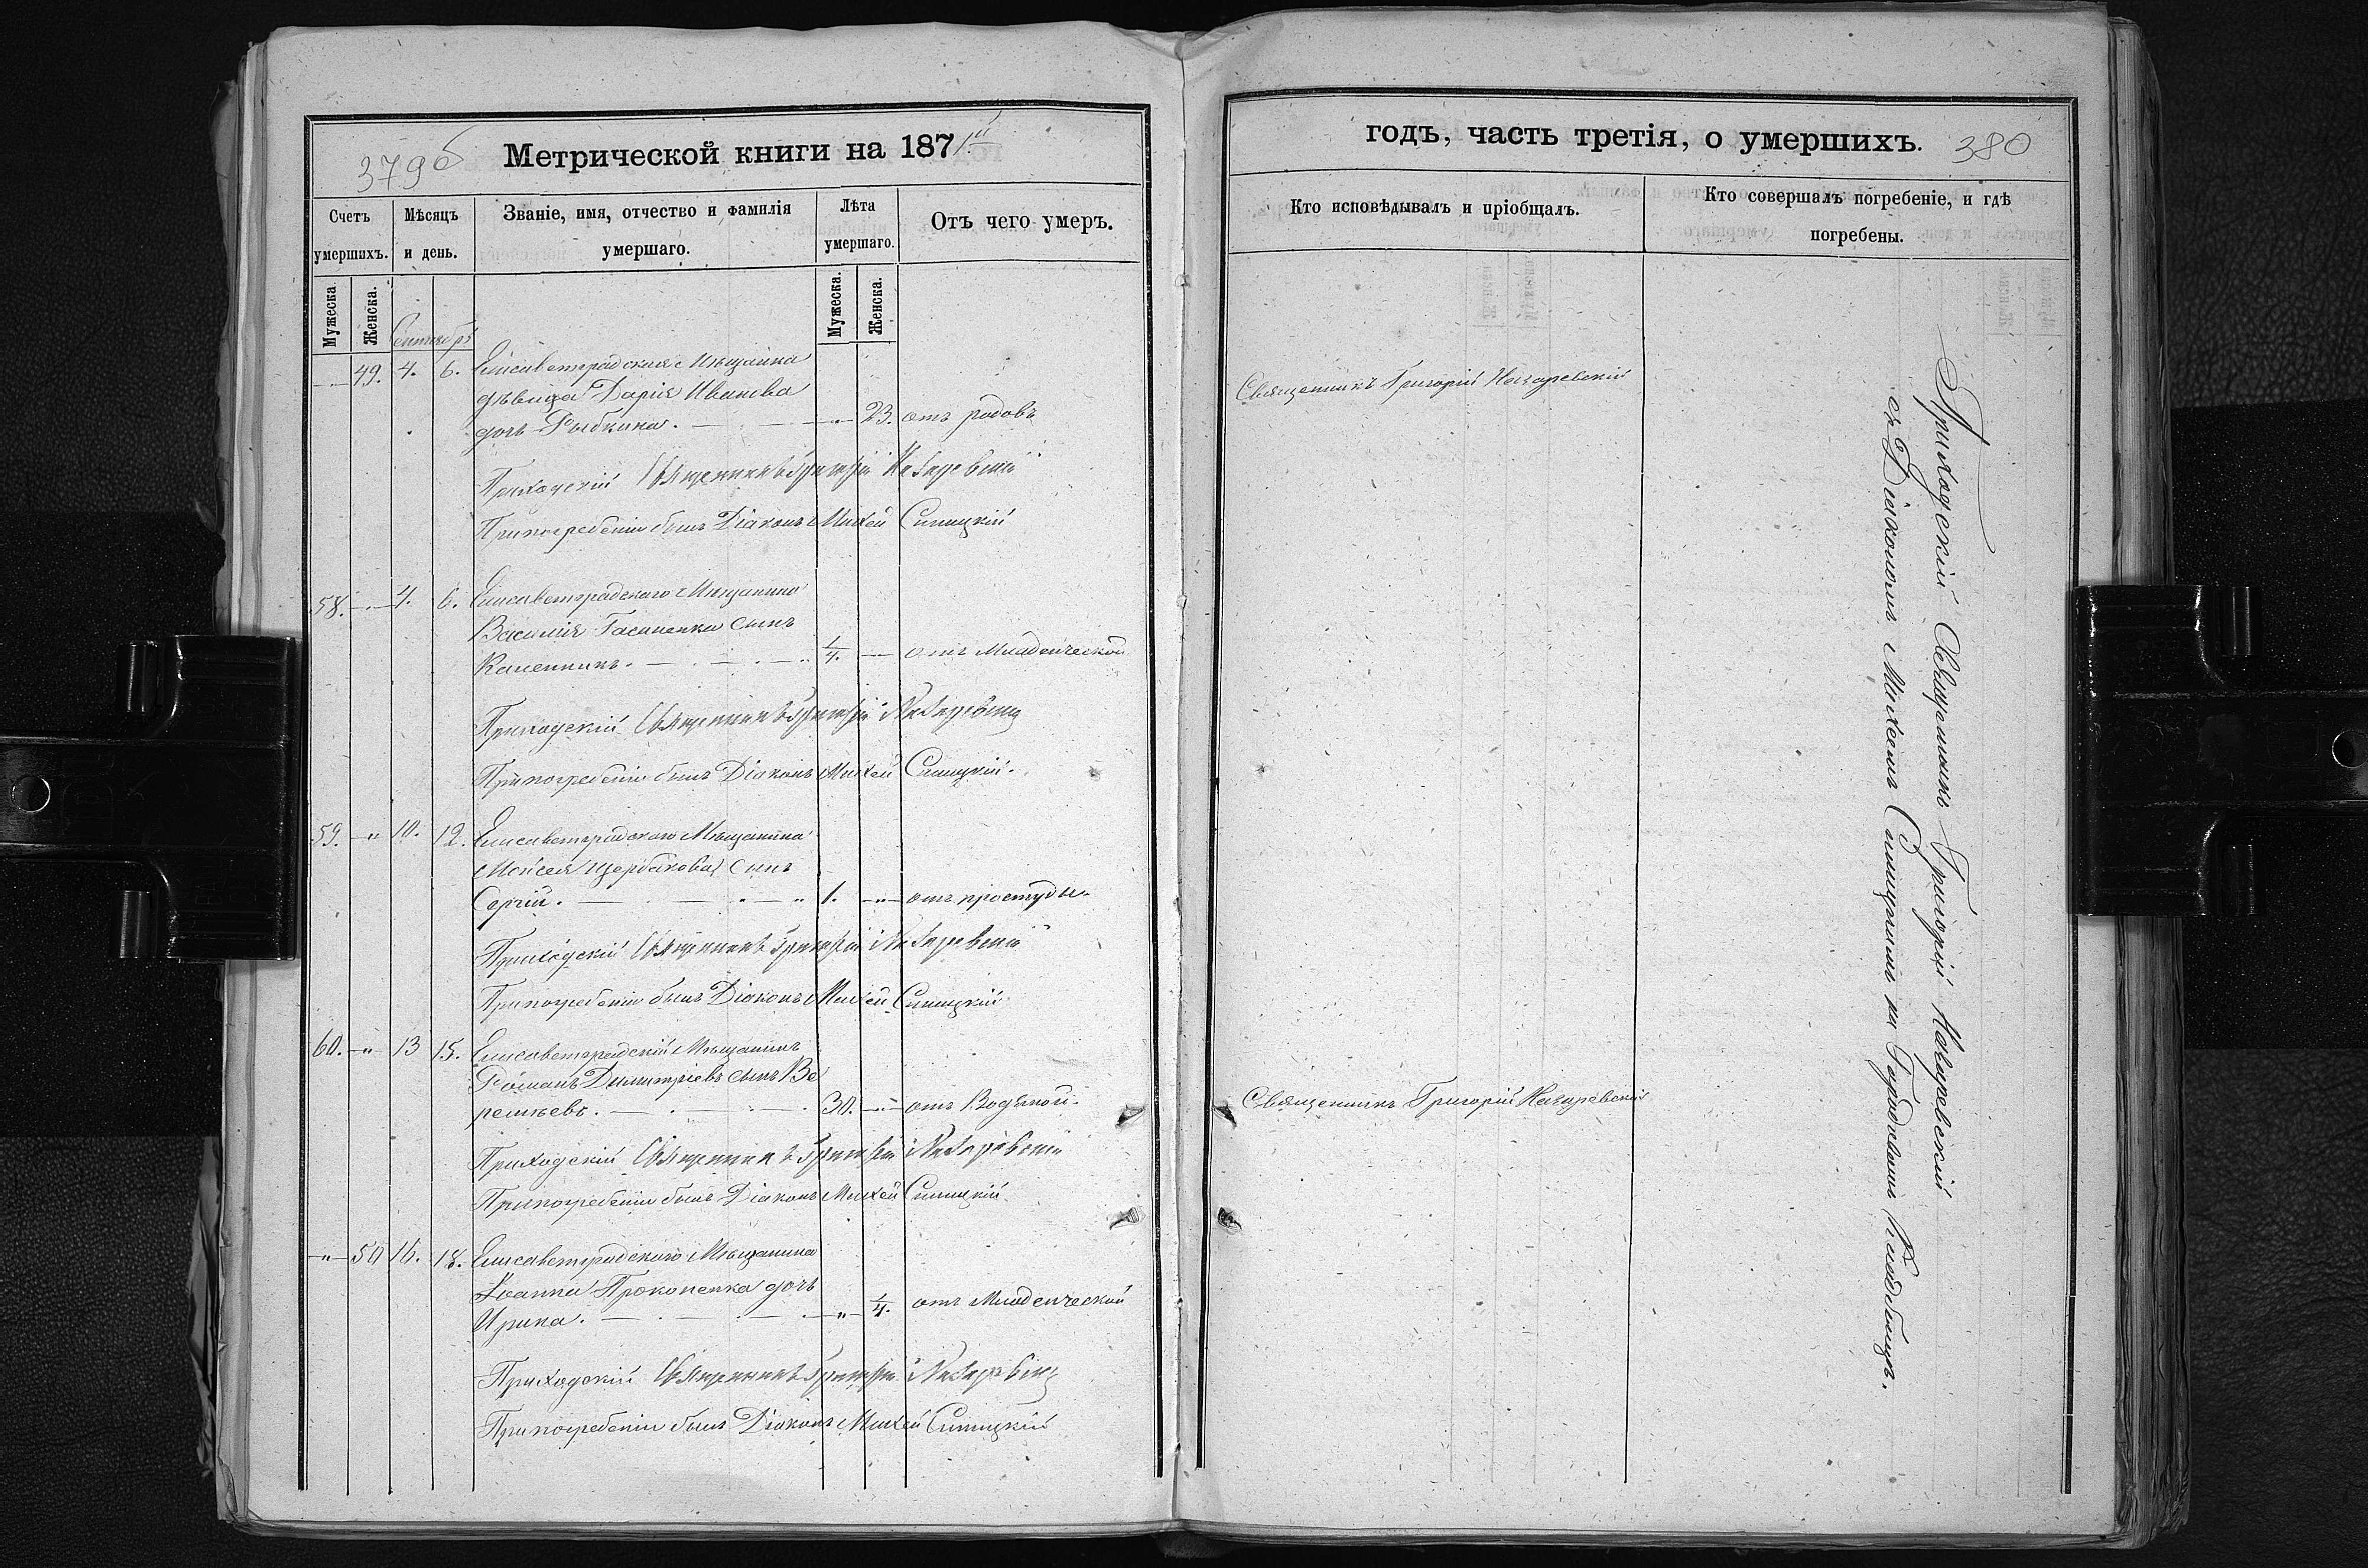 379 об
Метрической книги на 1871й
Счетъ умершихъ.
Мѣсяцъ и день.
Званіе, имя, отчество и фамилія умершаго.
Лѣта умершаго.
Отъ чего умеръ.
Мужеска
Женска.
Мужеска.
Женска.
Сентябрь
49. 4. 6. Елисаветградская Мѣщанка
дѣвица Дарія Иванова
дочь Рыбкина. 23. отъ родовъ
Приходскій Священникъ Григорій Назаревскій
При погребеніи былъ Діаконъ Михей Синицкій
58. 4. 6. Елисаветградскаго Мѣщанина
Василія Гасаненка сынъ
Каленникъ. 1/4. отъ Младенческой
Приходскій Священникъ Григорій Назаревскій
При погребеніи былъ Діаконъ Михей Синицкій.
59. 10. 12. Елисаветградскаго Мѣщанина
Моисея Щербакова сынъ
Сергій. 1. отъ простуды.
Приходскій Священникъ Григорій Назаревскій
При погребеніи былъ Діаконъ Михей Синицкій
60. 13 15. Елисаветградскій Мѣщанинъ
Романъ Димитріевъ сынъ Ве
решневъ. 30. отъ Водяной.
Приходскій Священникъ Григорій Назаревскій
При погребеніи былъ Діаконъ Михей Синицкій
50 16. 18. Елисаветградскаго Мѣщанина
Іоанна Прокопенка дочь
Ирина. 1/4. отъ Младенческой
Приходскій Священникъ Григорій Назаревскій
При погребеніи былъ Діаконъ Михей Синицкій
годъ, часть третія, о умершихъ.
380
Кто исповѣдывалъ и пріобщалъ.
Кто совершалъ погребеніе, и гдѣ
погребены.
Священникъ Григорій Назаревскій
Священникъ Григорій Назаревскій
Приходскій Священникъ Григорій Назаревскій
съ Діакономъ Михеемъ Синицкимъ на Городскомъ Кладбищѣ.